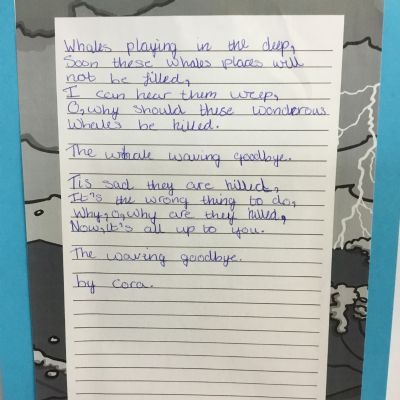 Whales playing in the deep,
Soon these whales places will
not be filled,
I can hear them weep,
O, why should these wonderous
whales be killed.
The whale waving goodbye.
Tis sad they are killed,
It's the wrong thing to do,
Why, O, why are they killed,
Now, it's all up to you.
The waving goodbye.
by Cora.